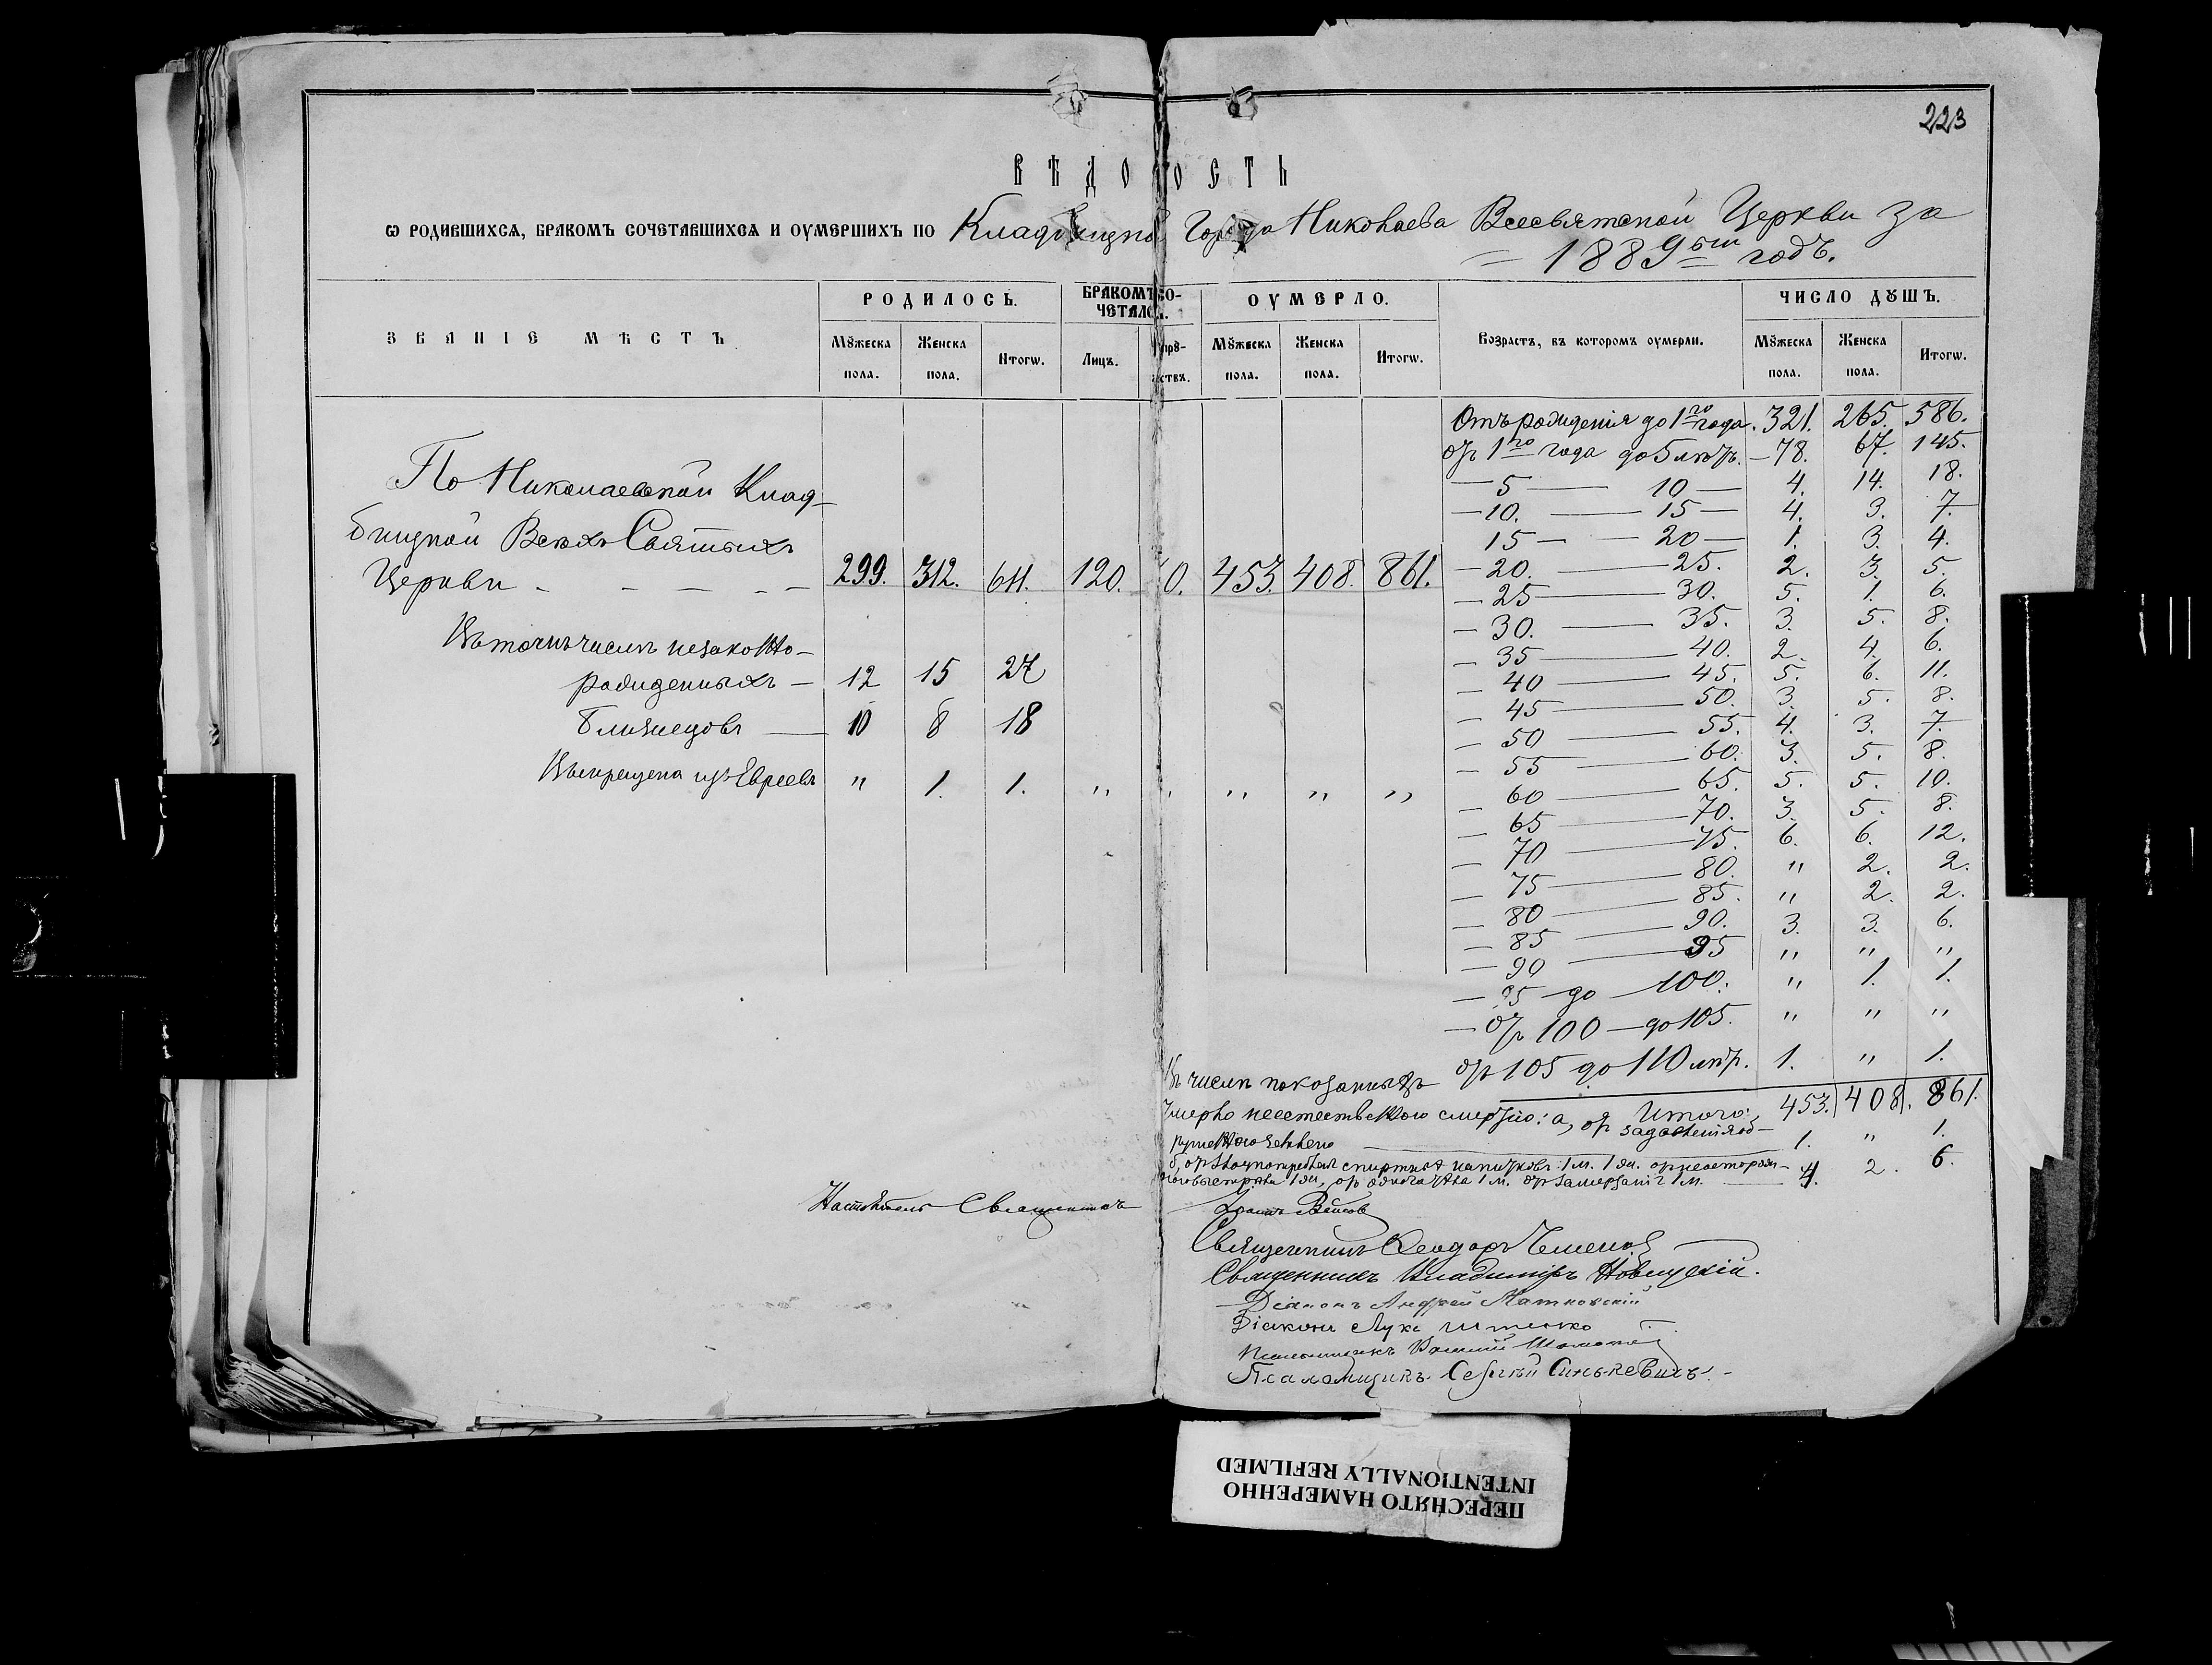 223
ВѢДОМОСТЬ
Ѡ РОДИВШИХСѦ, БРАКОМЪ СОЧЕТАВШИХСѦ И ОУМЕРШИХЪ ПО Кладбищной Города Николаева Всесвятской Церкви за
1889ый годъ.
ЗВАНІЕ МѢСТЪ
РОДИЛОСЬ.
БРАКОМЪ СО-
ЧЕТАЛОСЬ.
ОУМЕРЛО.
Возрастъ, въ которомъ оумерли.
ЧИСЛО ДꙊШЪ.
Мꙋжеска пола.
Женска пола.
Итогѡ.
Лицъ.
Мꙋжеска пола.
Женска пола.
Итогѡ.
Мꙋжеска пола.
Женска пола.
Итогѡ.
По Николаевской Клад-
бищной Всѣхъ Святыхъ
Церкви - - - - - 299. 312. 611. 120. 60. 453. 408. 861.
Въ томъ числѣ незаконно-
рожденныхъ - 12 15 27
близнецовъ — 10 8 18
изъ Евреевъ " 1. 1. " " " " "
Отъ рожденія до 1го года. 321. 265. 586.
отъ 1го года до 5 лѣтъ. - 78. 67. 145.
— 5 — 10 — 4. 14. 18.
— 10. — 15 — 4. 3. 7.
15 — — 20 — 1. 3. 4.
— 20. — 25. 2. 3. 5.
— 25 — 30. 5. 1. 6.
— 30. — 35. 3. 5. 8.
— 35 — 40. 2. 4. 6.
— 40 — 45. 5. 6. 11.
— 45 — 50. 3. 5. 8.
— 50 — 55. 4. 3. 7.
— 55 — 60. 3. 5. 8.
— 60 — 65. 5. 5. 10.
— 65 — 70. 3. 5. 8.
— 70 — 75. 6. 6. 12.
— 75 — 80. " 2. 2.
— 80 — 85. " 2. 2.
— 85 — 90. 3. 3. 6.
— 90 — 95 " " "
— 95 — до — 100. " 1. 1.
— отъ 100 — до 105. " " "
отъ 105 до 110 лѣтъ. 1. " 1.
Итого: 453. 408. 861.
Въ числѣ показанныхъ
умерло неестественною смертію: а, отъ задавленія об-
рушенною землею — 1. " 1.
б, отъ злоупотребленія спиртныхъ напитковъ 1 м. 1 ж. отъ неосторож-
наго выстрѣла 1 ж, отъ 1 м. отъ замерзанія 1 м. — 4. 2. 6.
Настоятель Священникъ
Священникъ Ѳеодоръ
Священникъ Владиміръ Новицкій.
Діаконъ Андрей Матковскій
Діаконъ Лука
Псаломщикъ
Псаломщикъ Сергѣй Синькевичъ.
ПЕРЕСНЯТО НАМЕРЕННО
INTENTIONALLY REFILMED